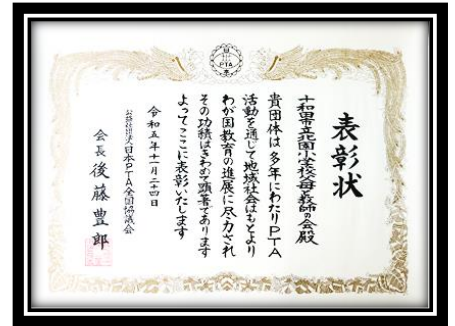 表彰状
十和田市立北園小学校父母と教師の会殿
貴団体は多年にわたりPTA
活動を通じて地域社会はもとより
わが国教育の進展に尽力され
その功績はきわめて顕著であります
よってここに表彰いたします
令和五年十一月二十四日
公益社団法人日本PTA全国協議会
会長 後藤豊郎
PTA